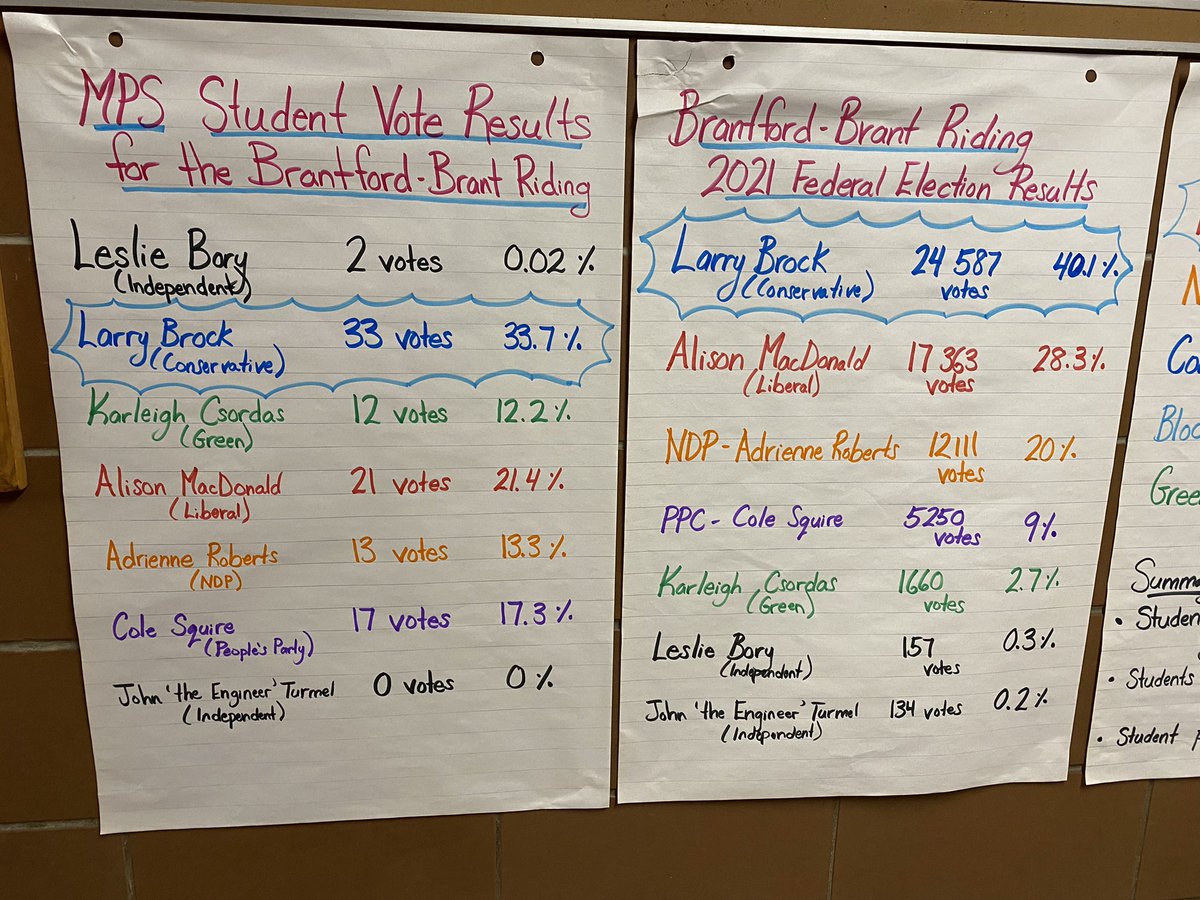 MPS Student Vote Results
for the Brantford-Brant Riding
Leslie Bory 2 votes 0.02 %
(Independent)
Larry Brock 33 votes 33.7 %
(Conservative)
Karleigh Csordas 12 votes 12.2 %
(Green)
Alison MacDonald 21 votes 21.4 %
(Liberal)
Adrienne Roberts 13 votes 13.3 %
(NDP)
Cole Squire 17 votes 17.3 %
(People's Party)
John 'the Engineer' Turmel 0 votes 0 %
(Independent)
Brantford-Brant Riding
2021 Federal Election Results
Larry Brock 24 587 40.1 %
(Conservative) votes
Alison MacDonald 17 363 28.3 %
(Liberal) votes
NDP - Adrienne Roberts 12111 20 %
votes
PPC - Cole Squire 5250 9 %
votes
Karleigh Csordas 1660 2.7 %
(Green) votes
Leslie Bory 157 0.3 %
(Independent) votes
John 'the Engineer' Turmel 134 votes 0.2 %
(Independent)
• Students
• Student